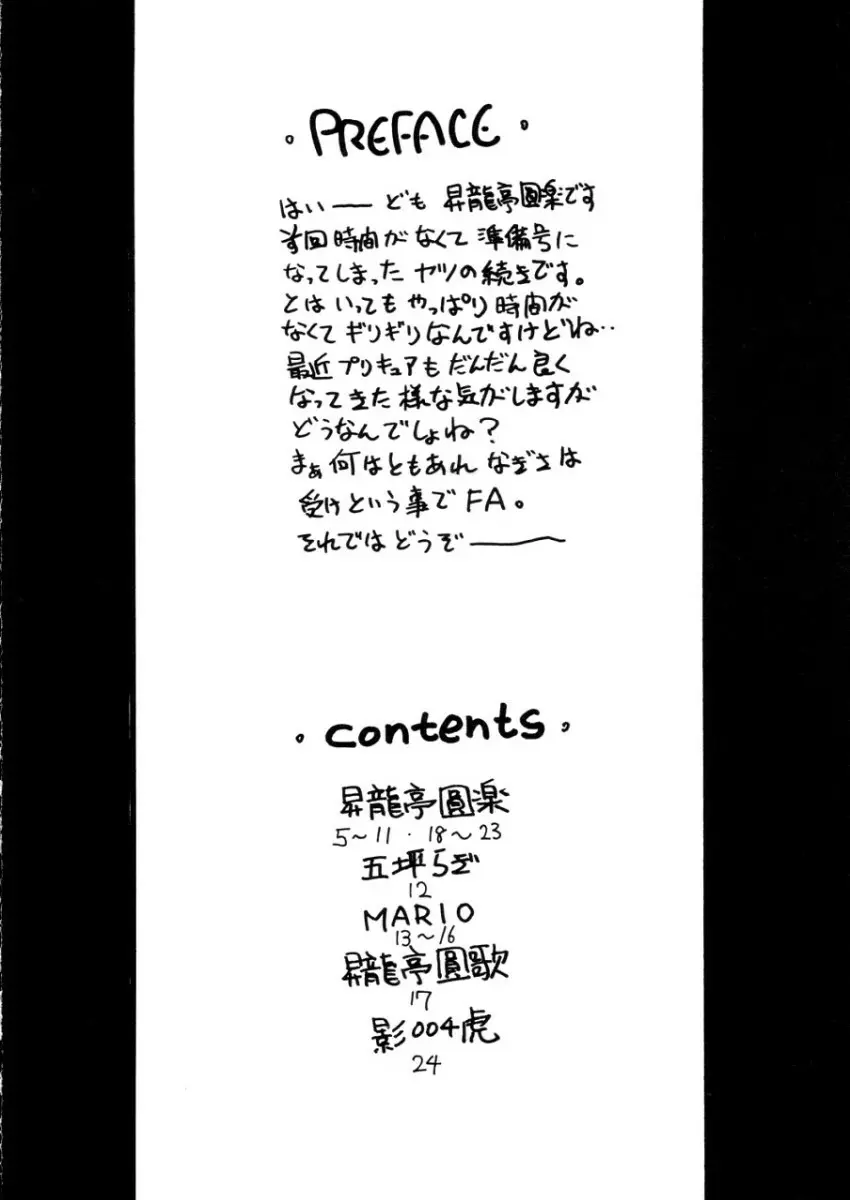 PREFACE
はい― ども 昇龍亭圓楽です
前回時間がなくて準備号に
なってしまった ヤツの続きです。
とはいっても やっぱり時間が
なくてギリギリなんですけどね‥
最近プリキュアもだんだん良く
なってきた様な気がしますが
どうなんでしょね?
まぁ何はともあれ なぎさは
受けという事でFA。
それではどうぞ―――
contents
昇龍亭圓楽
5~11・18~23
五坪らぞ
12
MARIO
13~16
昇龍亭圓歌
17
影004虎
24